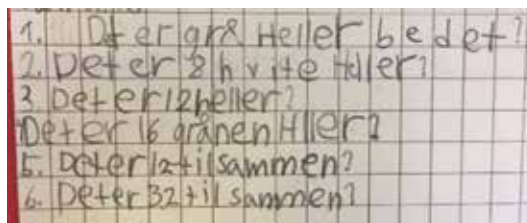 1. Det er grå Heller bedet?
2. Det er 8 hvite Heller?
3 Det er 12 heller?
Det er 16 grånen Hller?
5. Det er 12 til sammen?
6. Det er 32 til sammen?